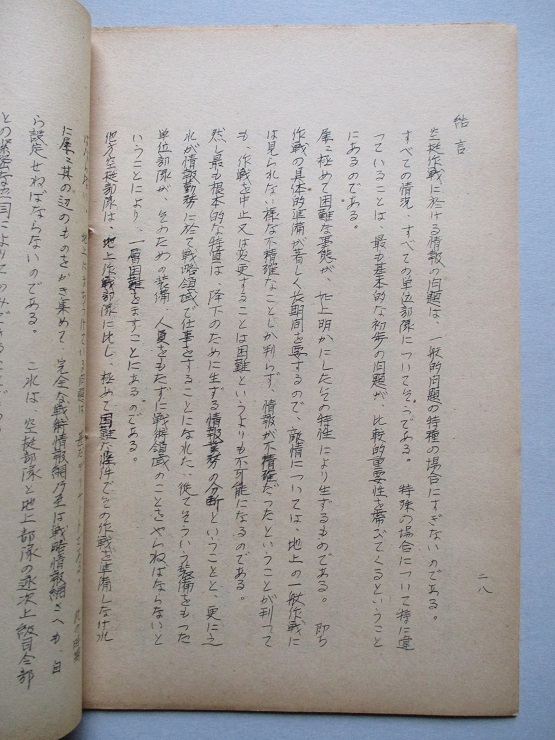 結言
空挺作戦に於ける情報の問題は、一般的問題の特種の場合にすぎないのである。
すべての情況 すべての単位部隊についてそうである。 特殊の場合について特に違
っていることは 最も基本的な初歩の問題が、比較的重要性を帯びてくるということ
にあるのである。
屡々極めて困難な事態が、 にしたその特性により生ずるものである。 即ち
作戦の具体的準備が著しく長期間を要するので、敵情については、地上の一般作戦に
は見られない様な不精確なことしか判らず、情報が不精確だったということが判って
も、作戦を中止又は変更することは困難というよりも不可能になるのである。
然し最も根本的な特質は、降下のために生ずる情報業務の分断ということと、更に之
れが情報勤務に於て戦略領域で仕事をすることになれた、従てそういう装備をもった
単位部隊が、そのための装備 人員をもたずに戦術領域のことをやらねばならないと
いうことにより、一層困難をますことにあるのである。
地方空挺部隊は 地上作戦部隊に比し、極めて困難な條件でその作戦を準備しなけれ
二八
に屡々其の辺のものをかき集めて、完全な戦術情報網乃至は戦略情報網さへも、自
ら設定せねばならないのである。 これは、空挺部隊と地上部隊の逐次上級司令部
との緊密な